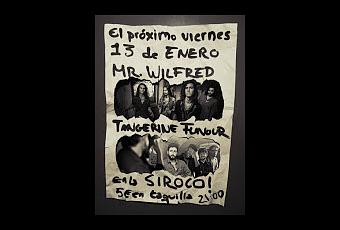 El próximo viernes
13 de ENERO
MR. WILFRED
TANGERINE FLAVOUR
en la SIROCO!
5€ en taquilla 21:00